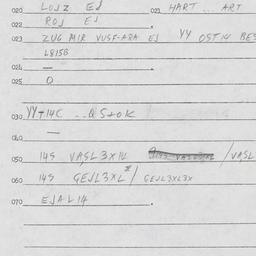 020 LOJZ EJ 023 HART ... ART
022 ROJ EJ
023 ZUG MIR VUSF-ARA EJ YY OSTIN BES
L815B
024 —
025 O
030 YY+14C .. Q S+OK
040 —
050 14S VASL3X1L /VASL
060 14S GEJL3XL* / GEJL3XL3X
070 EJAL14